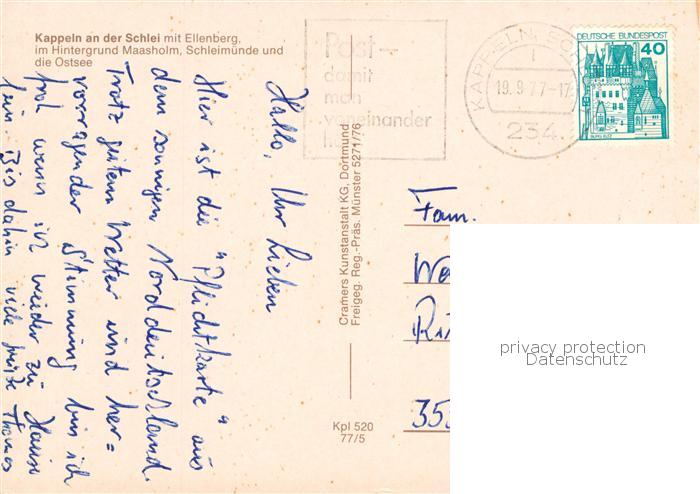 Kappeln an der Schlei mit Ellenberg,
im Hintergrund Maasholm, Schleimünde und
die Ostsee
Post-
damit
man
voneinander
KAPPELN, SCH
19.9.77-17
234
DEUTSCHE BUNDESPOST
40
BURG ELTZ
Hallo, Ihr Lieben
Hier ist die "Pflichtkarte" aus
dem sonnigen Norddeutschland.
Trotz gutem Wetter und her=
vorragender Stimmung bin ich
froh wenn ich wieder zu Hause
bin. Bis dahin viele Grüße Thomas
Cramers Kunstanstalt KG. Dortmund
Freigeg. Reg.-Präs. Münster 5271/76
Kpl 520
77/5
Fam.
We
35
privacy protection
Datenschutz